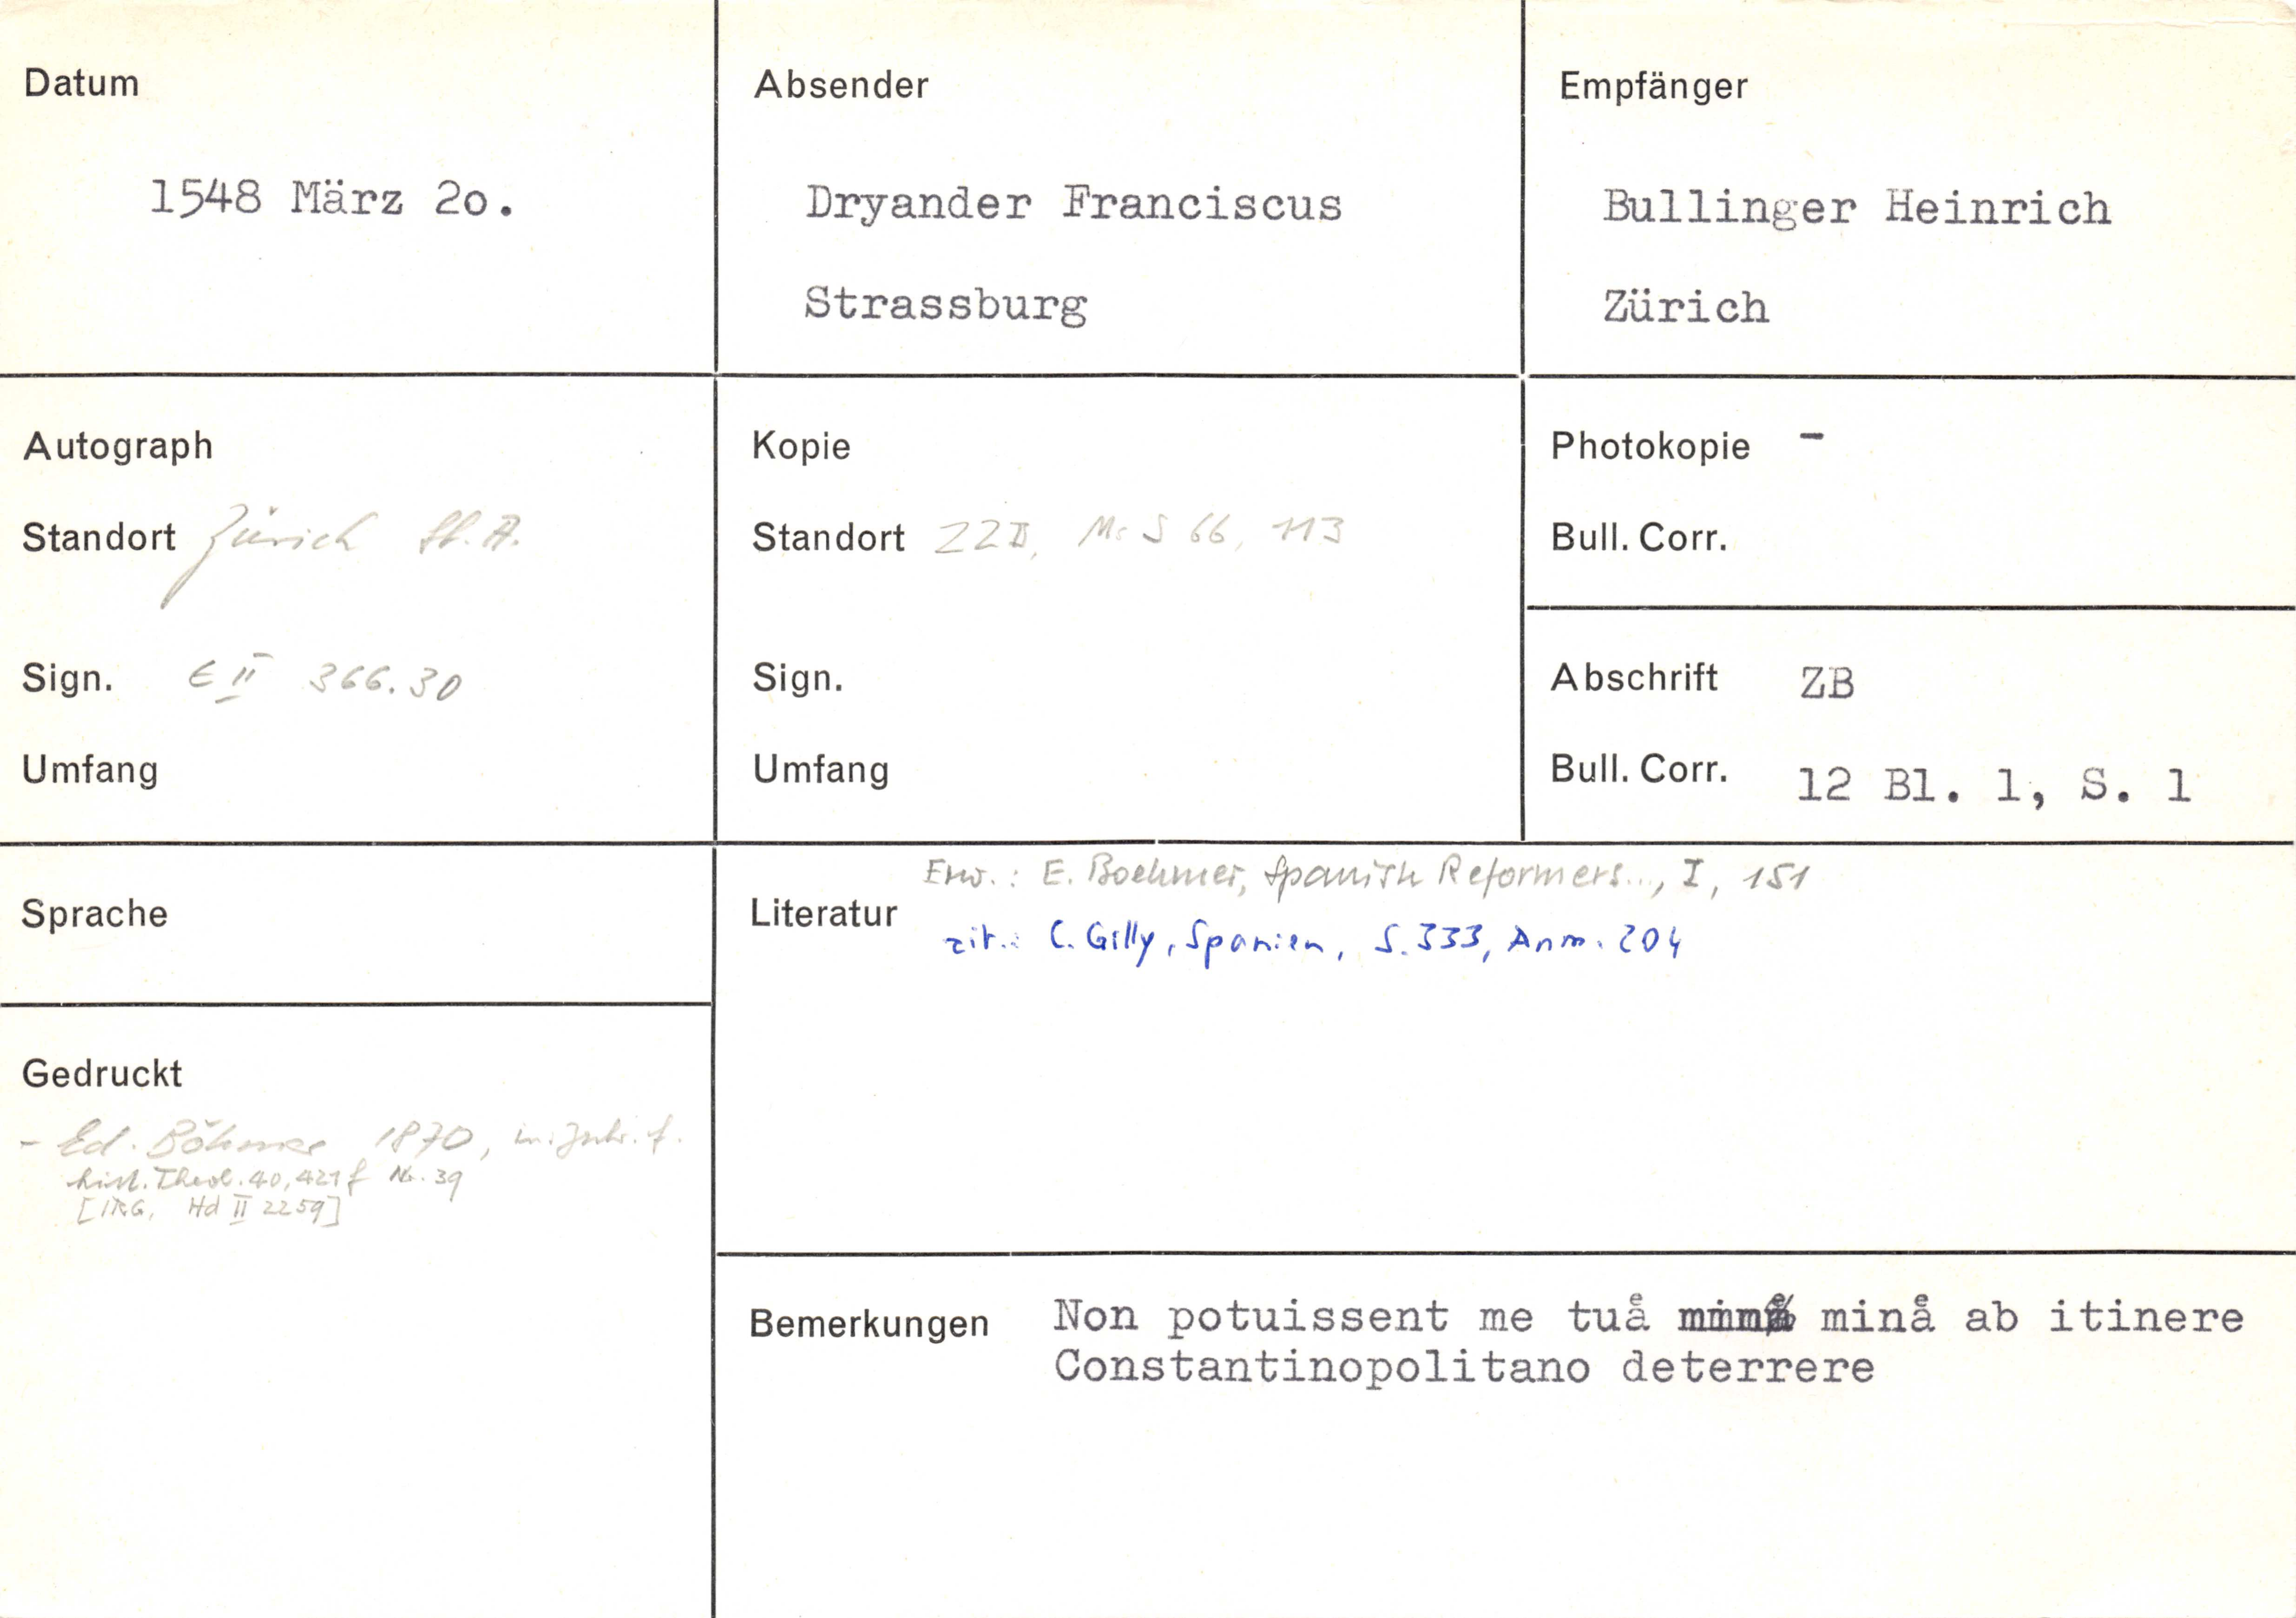 Datum
1548 März 2o.
Absender
Dryander Franciscus
Strassburg
Empfänger
Bullinger Heinrich
Zürich
Autograph
Standort Zürich St. A.
Sign. E II 366.30
Umfang
Kopie
Standort ZZB, Ms S 66, 113
Sign.
Umfang
Photokopie -
Bull. Corr.
Abschrift ZB
Bull. Corr. 12 Bl. 1, S. 1
Sprache
Gedruckt
- Ed. Böhmer 1870, in: Zschr. f.
hist. Theol. 40, 421 f Nr. 39
[IRG, Hd II 2259]
Literatur
Erw.: E. Boehmer, Spanish Reformers..., I, 151
zit.: C. Gilly, Spanien, S. 333, Anm. 204
Bemerkungen
Non potuissent me tuå minå ab itinere
Constantinopolitano deterrere